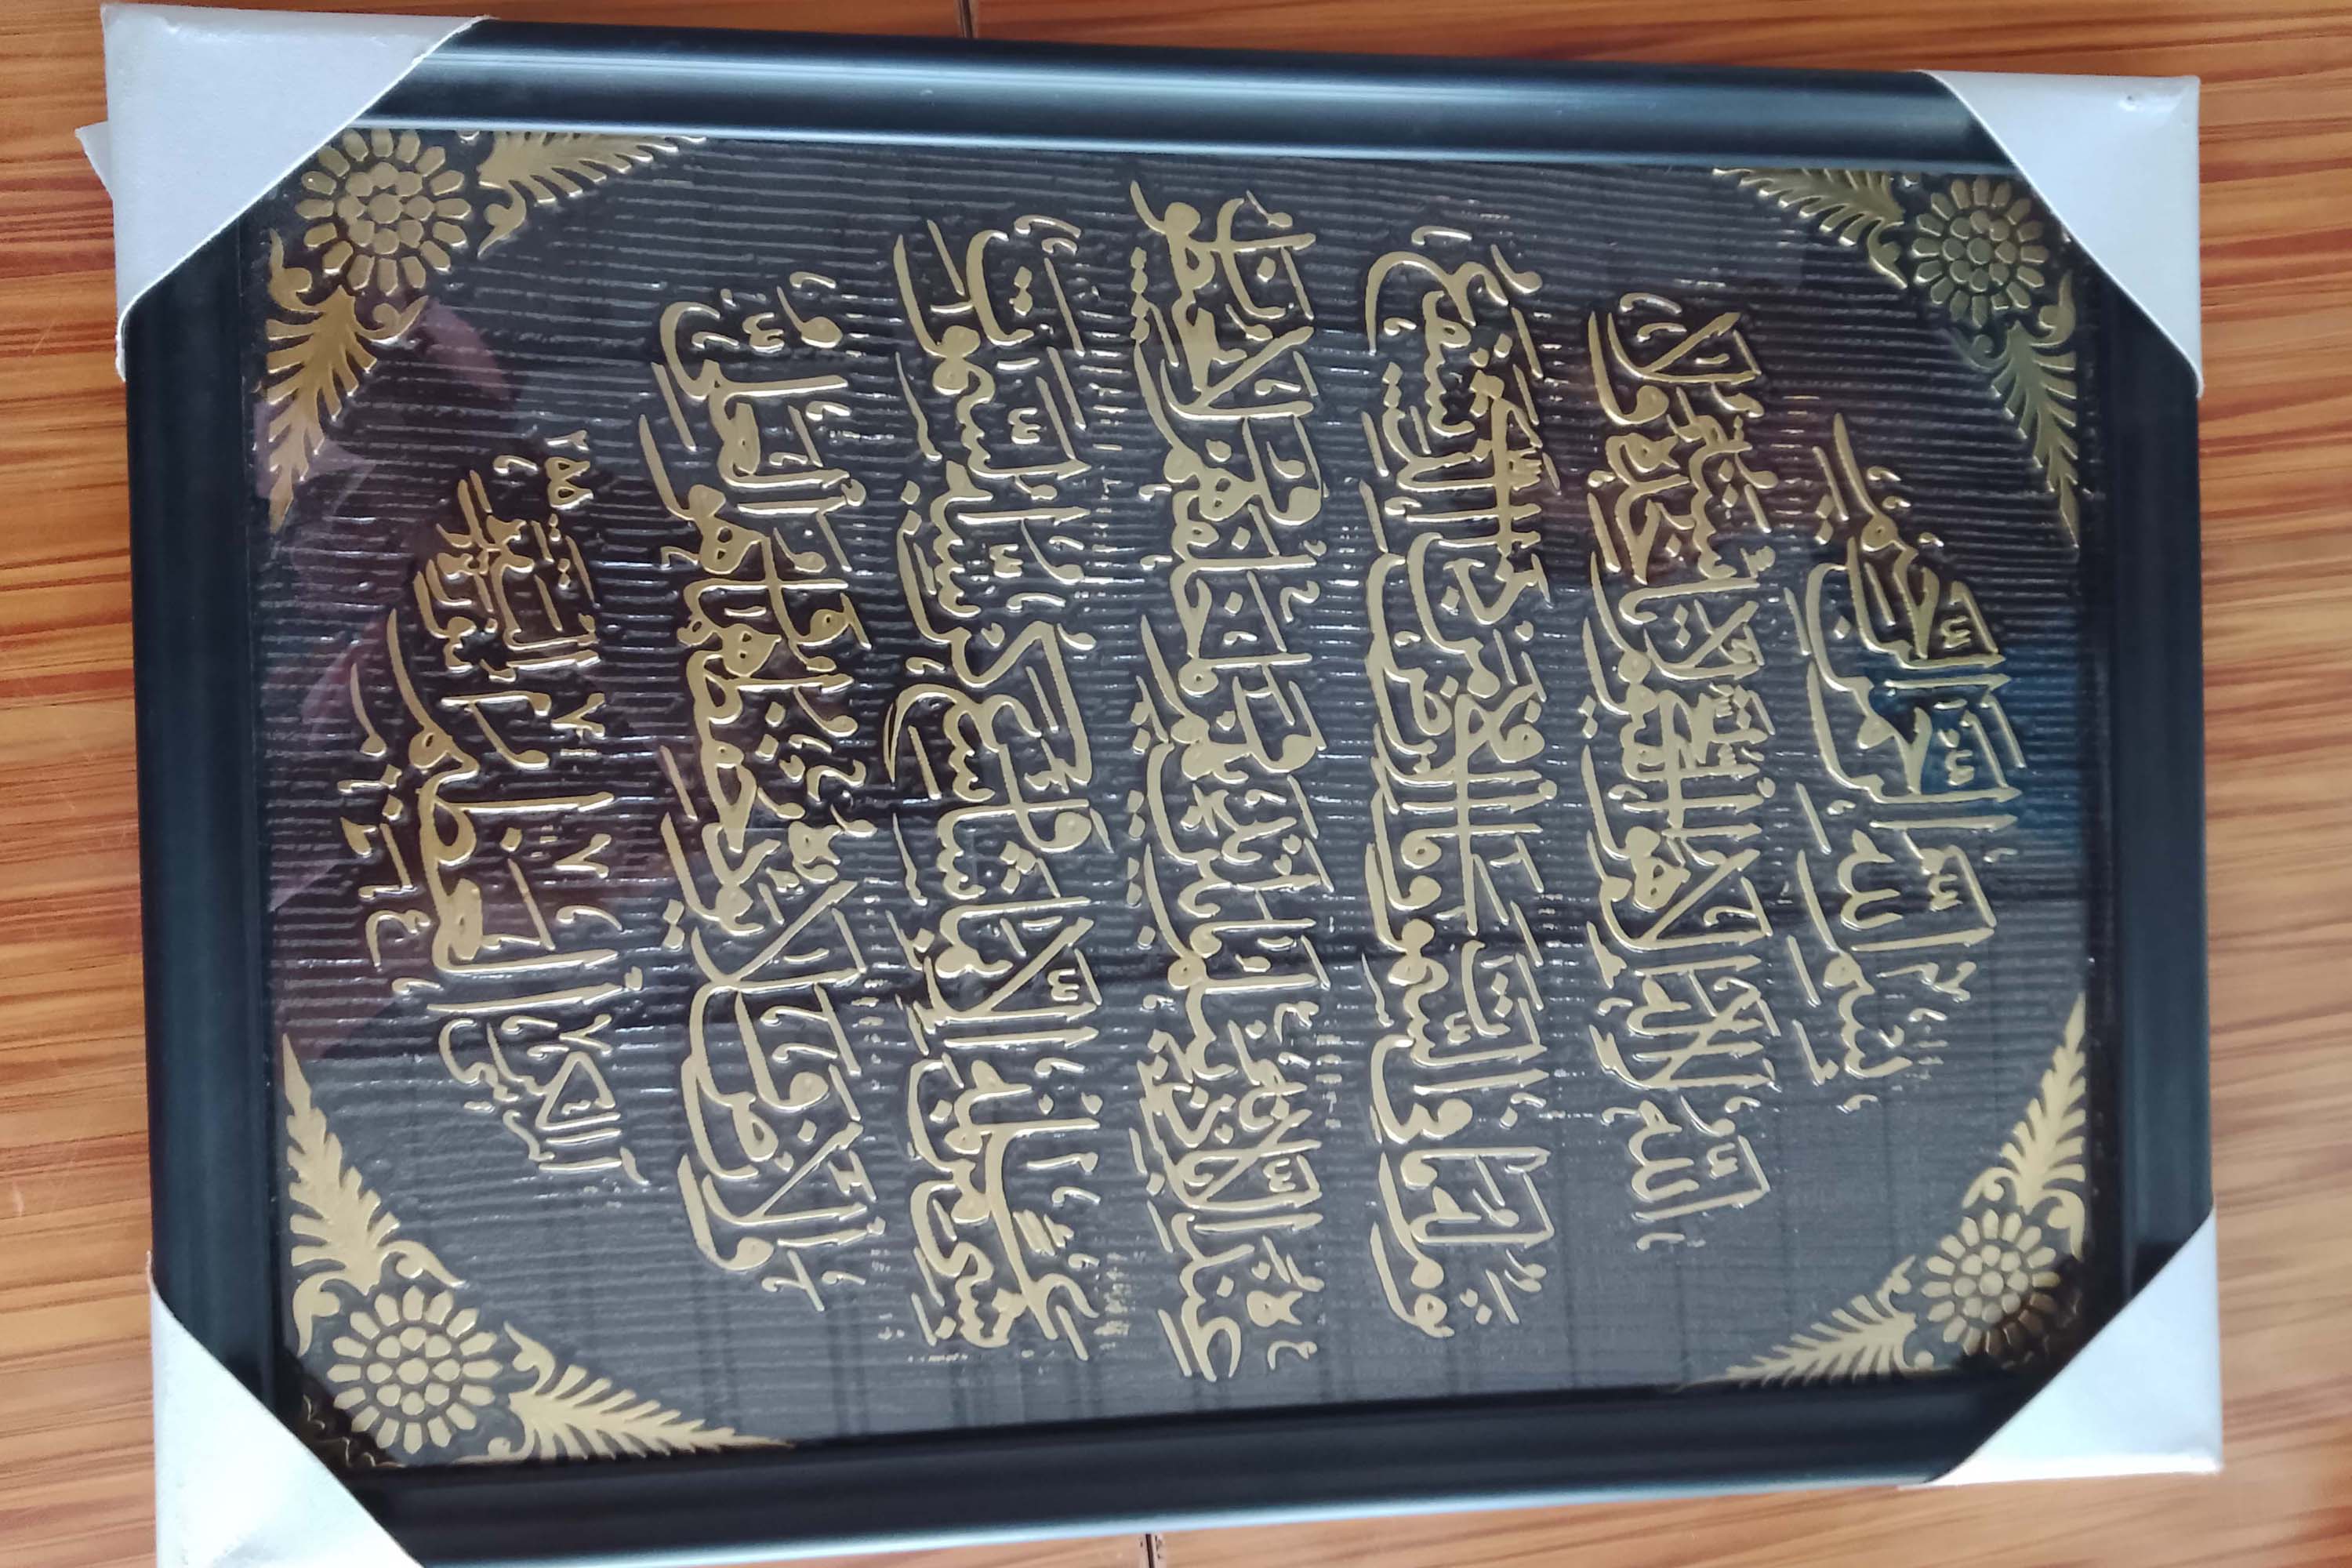 بِسْمِ اللهِ الرَّحْمٰنِ الرَّحِيْمِ
اَللهُ لَآ اِلٰهَ اِلَّا هُوَ الْحَيُّ الْقَيُّوْمُ لَا تَأْخُذُهُ سِنَةٌ وَلَا
نَوْمٌ لَهُ مَا فِى السَّمٰوٰتِ وَمَا فِى الْاَرْضِ مَنْ ذَا الَّذِيْ يَشْفَعُ
عِنْدَهُ اِلَّا بِاِذْنِهِ يَعْلَمُ مَا بَيْنَ اَيْدِيْهِمْ وَمَا خَلْفَهُمْ وَلَا يُحِيْطُوْنَ
بِشَيْءٍ مِنْ عِلْمِهِ اِلَّا بِمَا شَآءَ وَسِعَ كُرْسِيُّهُ السَّمٰوٰتِ
وَالْاَرْضَ وَلَا يَئُوْدُهُ حِفْظُهُمَا وَهُوَ الْعَلِيُّ
الْعَظِيْمُ
اية الكرسي
سورة البقرة ٢٥٥